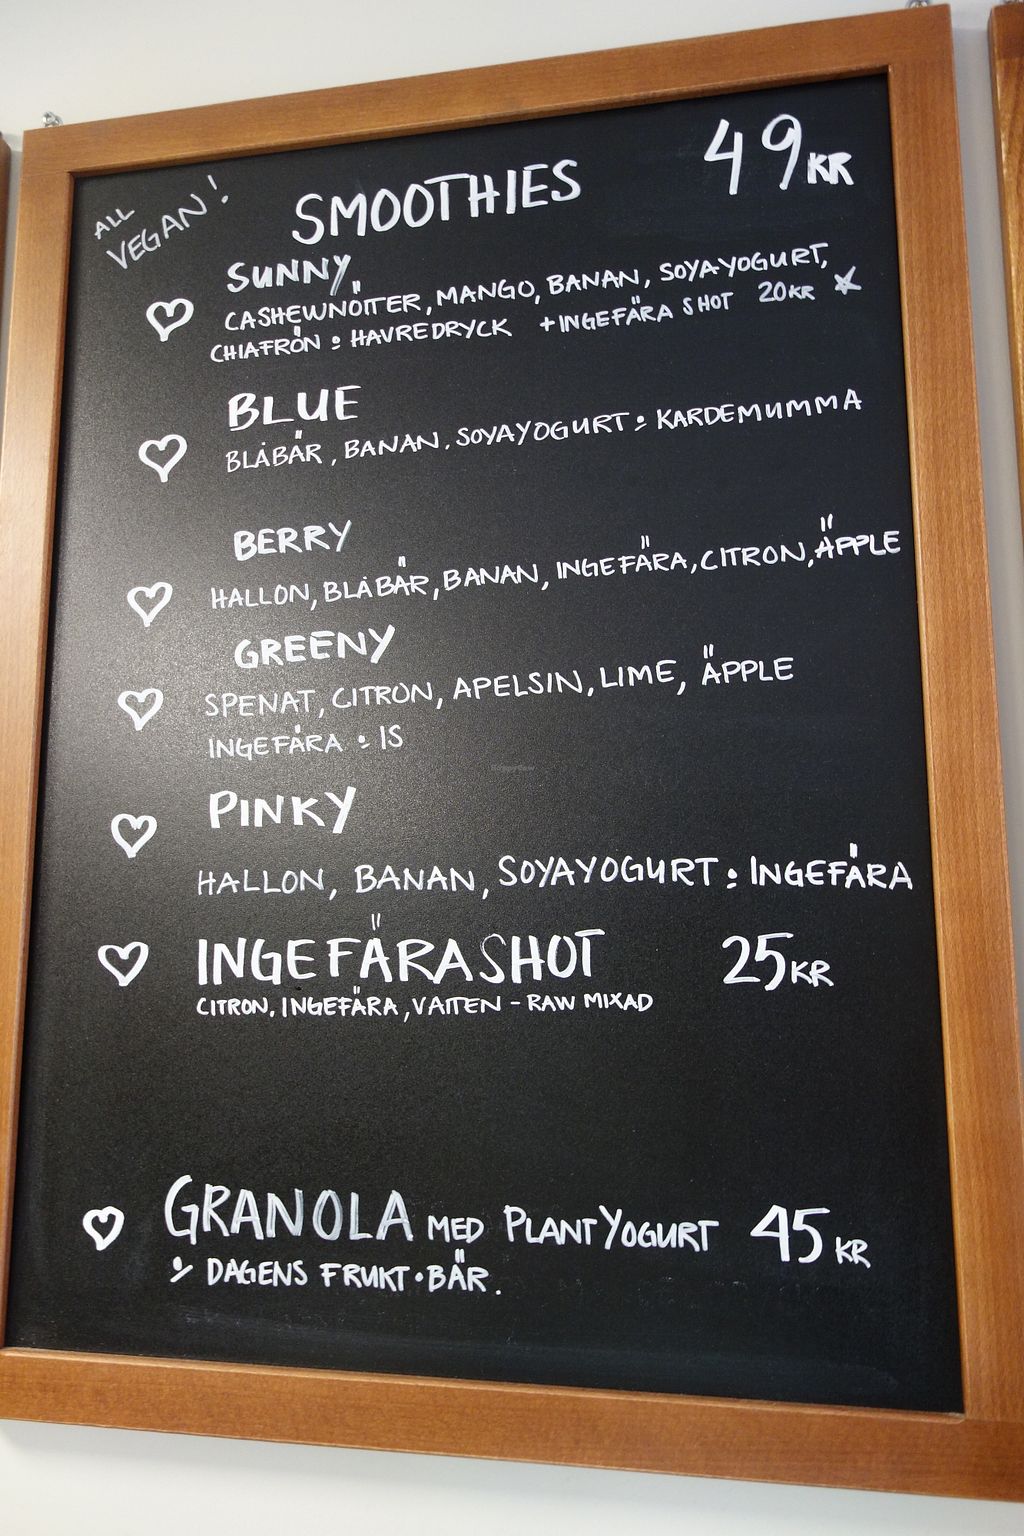 ALL
VEGAN!
SMOOTHIES 49KR
SUNNY
CASHEWNÖTTER, MANGO, BANAN, SOYAYOGURT,
CHIAFRÖN & HAVREDRYCK +INGEFÄRA SHOT 20KR
BLUE
BLÅBÄR, BANAN, SOYAYOGURT & KARDEMUMMA
BERRY
HALLON, BLÅBÄR, BANAN, INGEFÄRA, CITRON, ÄPPLE
GREENY
SPENAT, CITRON, APELSIN, LIME, ÄPPLE
INGEFÄRA & IS
PINKY
HALLON, BANAN, SOYAYOGURT & INGEFÄRA
INGEFÄRASHOT 25KR
CITRON, INGEFÄRA, VATTEN - RAW MIXAD
GRANOLA MED PLANTYOGURT 45 KR
& DAGENS FRUKT • BÄR.